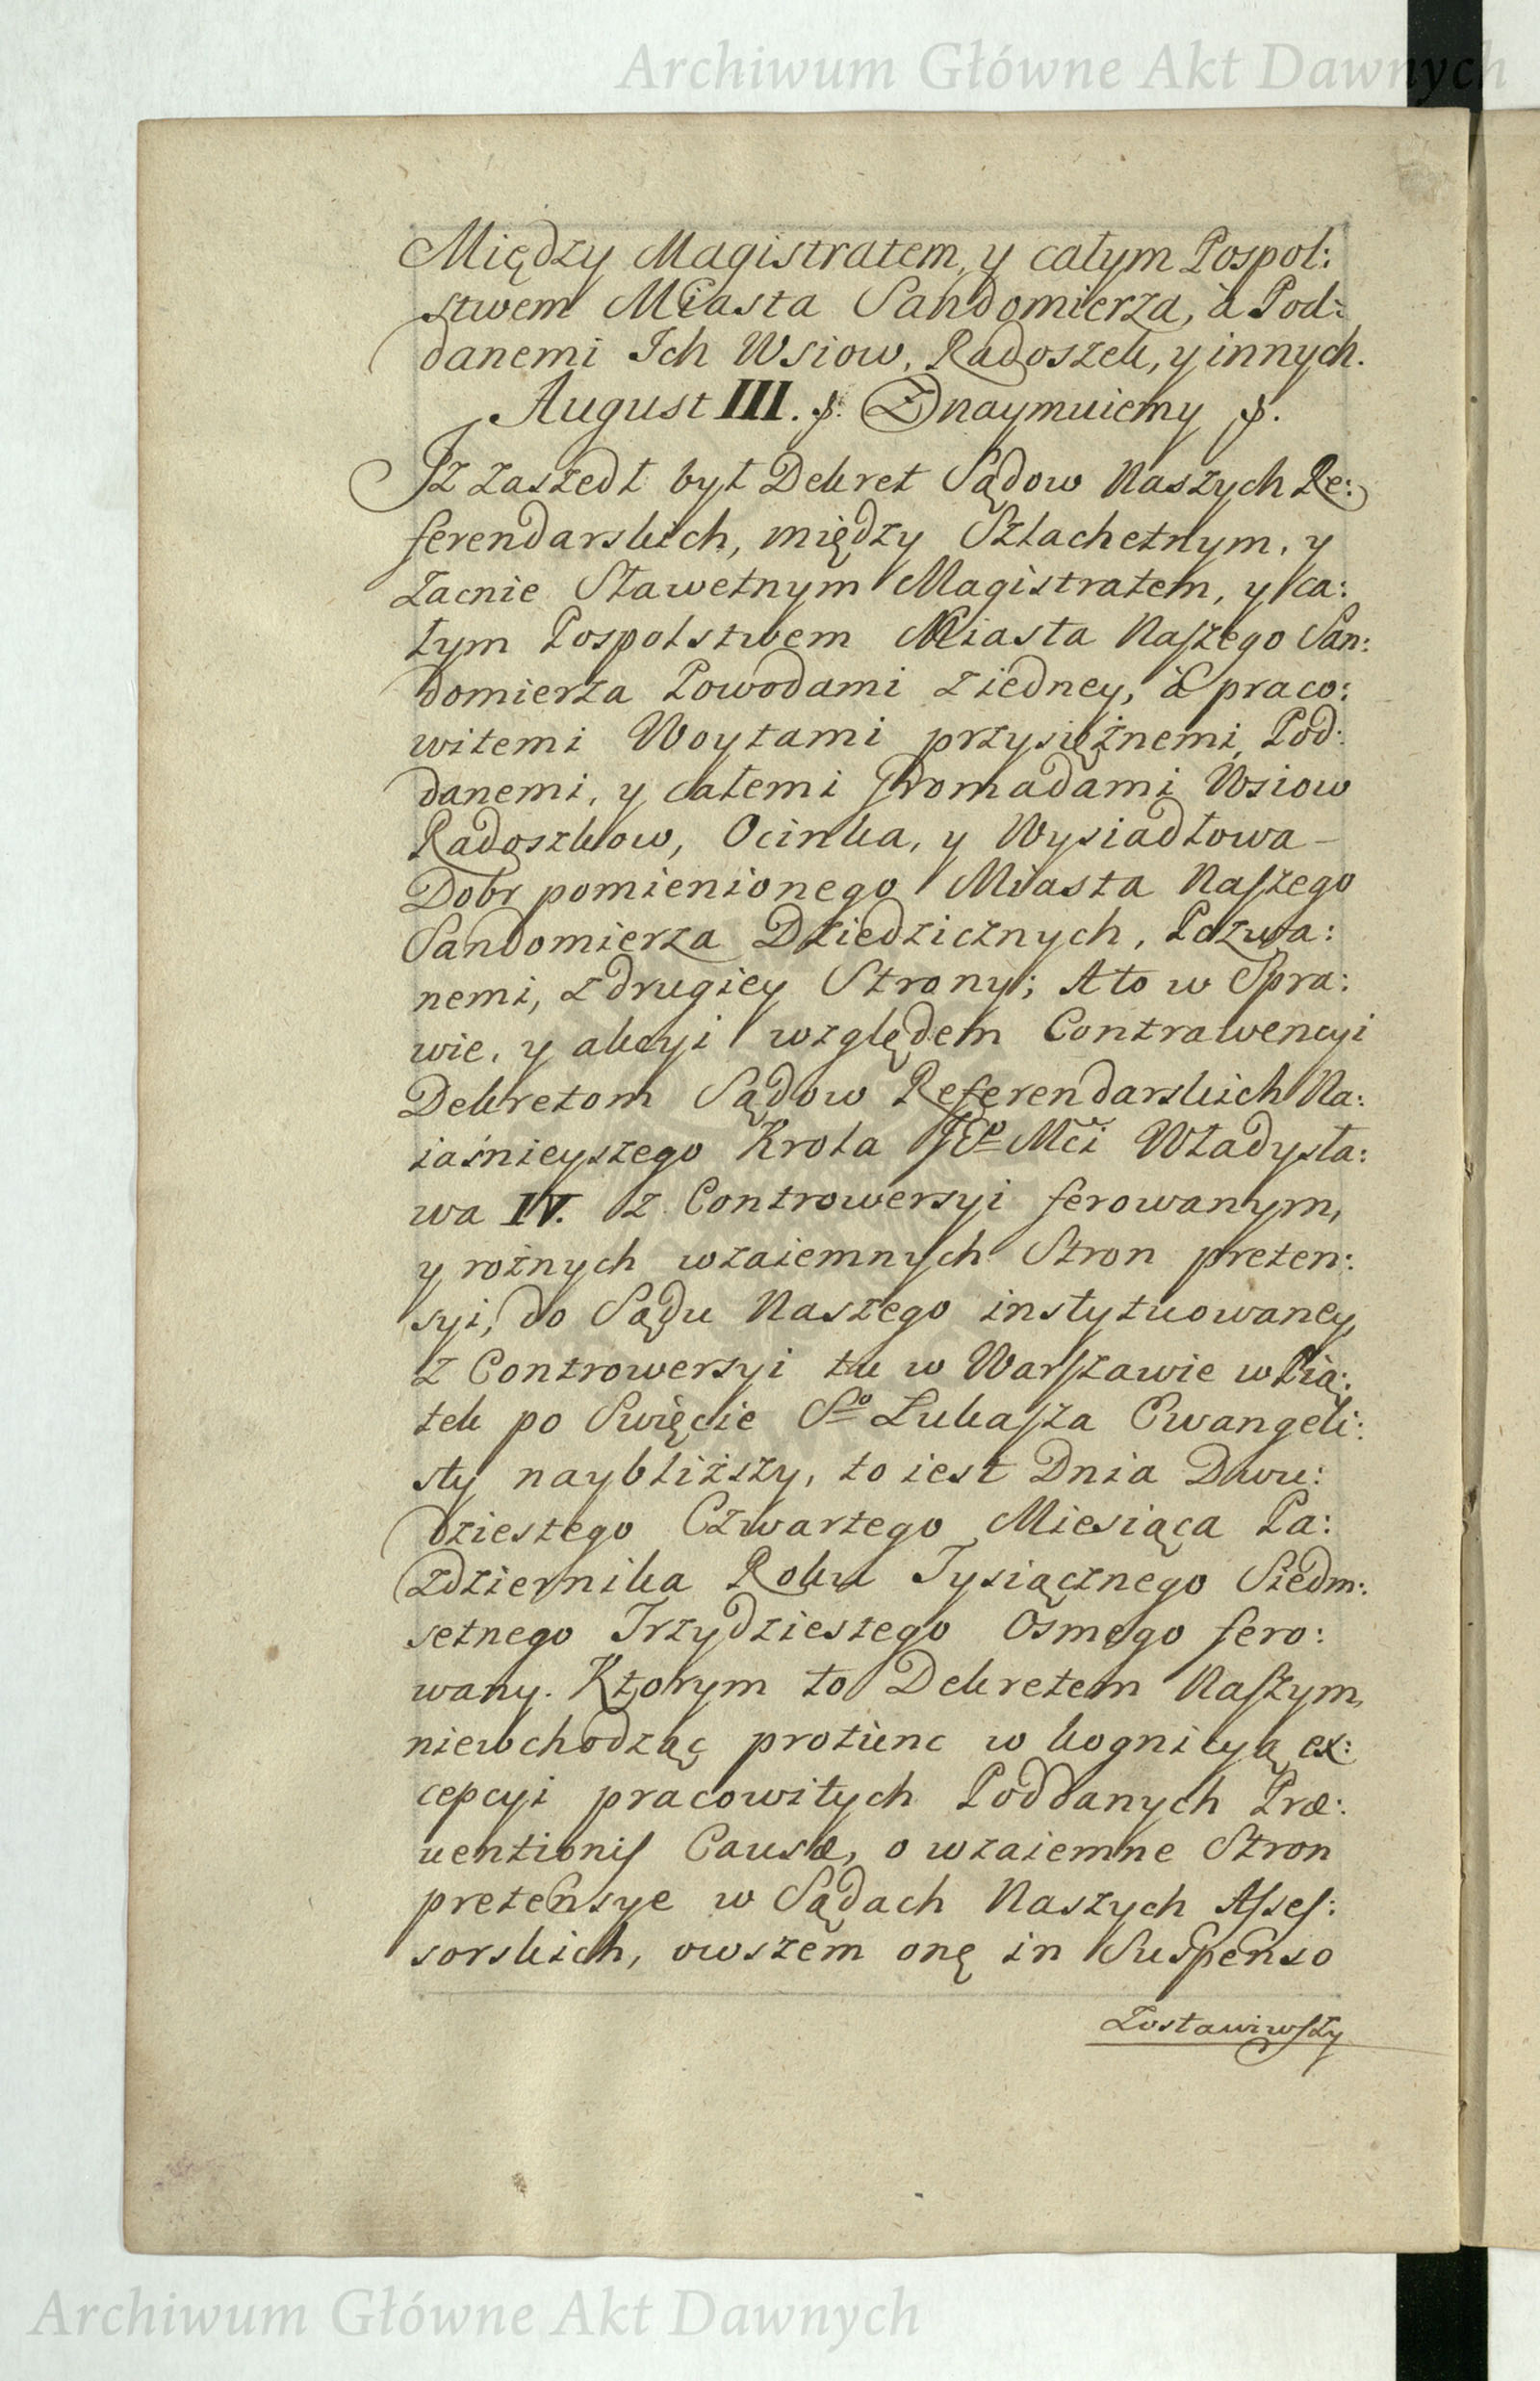 Archiwum Główne Akt Dawnych
Między Magistratem, y całym Pospol:
stwem Miasta Sandomierza, à Pod:
danemi Ich Wsiow, Radoszek, y innych.
August III. &. Znaymuiemy &.
Jz zaszedł był Dekret Sądow Naszych Re:
ferendarskich, między Szlachetnym, y
zacnie Sławetnym Magistratem, y ca:
łym Pospolstwem Miasta Naszego San:
domierza Powodami z iedney, à praco:
witemi Woytami przysiężnemi, Pod:
danemi, y całemi Gromadami Wsiow
Radoszkow, Ocinka, y Wysiadłowa –
Dobr pomienionego Miasta Naszego
Sandomierza Dziedzicznych, Pozwa:
nemi, z drugiey Strony; A to w Spra:
wie, y akcyi względem Contrawencyi
Dekretom Sądow Referendarskich Na:
iaśnieyszego Krola JEº Mći Władysła:
wa IV. z Controwersyi ferowanym,
y rożnych wzaiemnych Stron preten:
syi, do Sądu Naszego instytuowaney,
z Controwersyi tu w Warszawie w Pią:
tek po Swięcie Sº Łukasza Ewangeli:
sty naybliższy, to iest Dnia Dwu:
dziestego Czwartego Miesiąca Pa:
zdziernika Roku Tysiącznego Siedm:
setnego Trzydziestego Osmego fero:
wany. Ktorym to Dekretem Naszym,
niewchodząc protunc w kognicyą ex:
cepcyi pracowitych Poddanych Præ:
uentionis Causæ, o wzaiemne Stron
pretensye w Sądach Naszych Asses:
sorskich, owszem onę in Suspenso
Zostawiwszy
Archiwum Główne Akt Dawnych